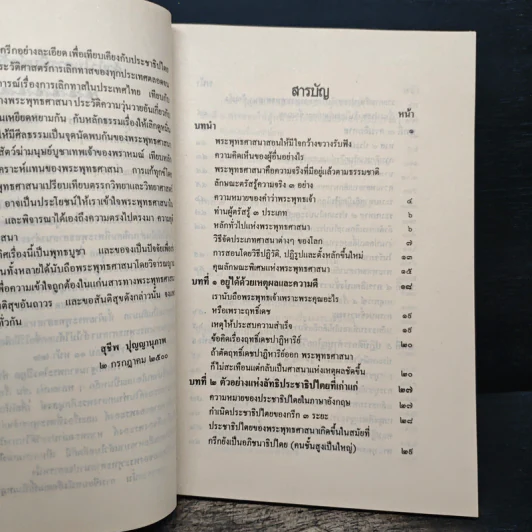 กรีกอย่างละเอียด เพื่อเทียบเคียงกับประชาธิปไตย
ระวัติศาสตร์การเลิกทาสของทุกประเทศตลอดจน
การณ์เรื่องการเลิกทาสในประเทศไทย เทียบกับ
างพระพุทธศาสนา ประวัติความวุ่นวายอันเกี่ยวกับ
นเหยียดหยามกัน กับหลักธรรมเรื่องให้เลิกดูหมิ่น
ให้มีศีลธรรมเป็นจุดนัดพบกันของพระพุทธศาสนา
สัตว์ฆ่ามนุษย์บูชาเทพเจ้าของพราหมณ์ เทียบหลัก
เคราะห์แทนของพระพุทธศาสนา การแก้ทุกข์โดย
พุทธศาสนาเปรียบเทียบตรรกวิทยาและวิทยาศาสตร์
อาจเป็นประโยชน์ให้เราเข้าใจพระพุทธศาสนา
และพิจารณาได้เองถึงความตรงไปตรงมา ความ
าสนา
ศเรื่องนี้เป็นพุทธบูชา และขอจงเป็นปัจจัยเพื่อก
นทั้งหลายได้นับถือพระพุทธศาสนาโดยวิจารณญ
พื่อความเข้าใจถูกต้องในแก่นสารทางพระพุทธศาส
ติสุขอันถาวร และขอสันติสุขดังกล่าวนั้น จงแผ
ทั่วกัน
สุชีพ ปุญญานุภาพ
๒ กรกฎาคม ๒๕๐๐
สารบัญ
หน้า
บทนำ ๑
พระพุทธศาสนาสอนให้มีใจกว้างขวางรับฟัง
ความคิดเห็นของผู้อื่นอย่างไร
พระพุทธศาสนาคือความจริงที่มีอยู่แล้วตามธรรมชาติ
ลักษณะตรัสรู้ความจริง ๓ อย่าง
ความหมายของคำว่าพระพุทธเจ้า ๔
ท่านผู้ตรัสรู้ ๓ ประเภท ๖
หลักทั่วไปแห่งพระพุทธศาสนา ๖
วิธีจัดประเภทศาสนาต่างๆ ของโลก ๗
การสอนโดยวิธีปฏิวัติ, ปฏิรูปและตั้งหลักขึ้นใหม่ ๑๓
คุณลักษณะพิเศษแห่งพระพุทธศาสนา ๑๕
บทที่ ๑ อยู่ได้ด้วยเหตุผลและความดี ๑๘
เรานับถือพระพุทธเจ้าเพราะพระคุณอะไร
หรือเพราะฤทธิ์เดช ๑๙
เหตุให้ประสบความสำเร็จ ๑๙
ข้อคิดเรื่องฤทธิ์เดชปาฏิหาริย์ ๒๐
ถ้าตัดฤทธิ์เดชปาฏิหาริย์ออก พระพุทธศาสนา
ก็ไม่สะเทือนแต่กลับเป็นศาสนาแห่งเหตุผลชัดขึ้น ๒๐
บทที่ ๒ ตัวอย่างแห่งลัทธิประชาธิปไตยที่เก่าแก่ ๒๗
ความหมายของประชาธิปไตยในภาษาอังกฤษ ๒๗
กำเนิดประชาธิปไตยของกรีก ๓ ระยะ ๒๘
ประชาธิปไตยของพระพุทธศาสนาเกิดขึ้นในสมัยที่
กรีกยังเป็นอภิชนาธิปไตย (คนชั้นสูงเป็นใหญ่) ๒๙